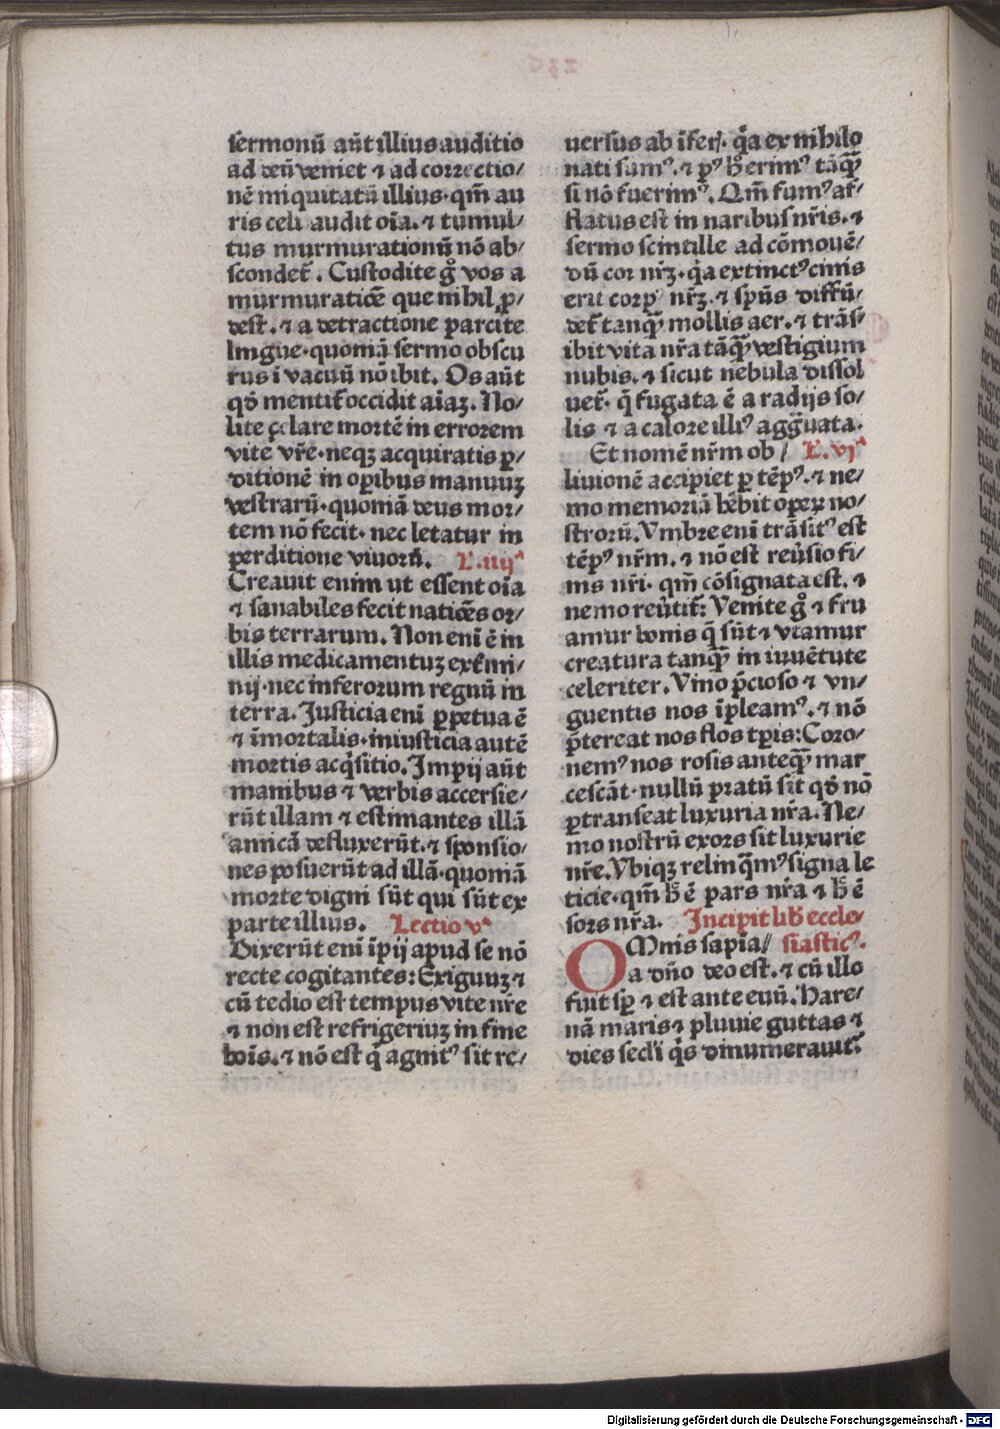 sermonū aūt illius auditio
ad deū veniet ⁊ ad correctio/
nē iniquitatū illius·qm̄ au
ris celi audit oīa.⁊ tumul/
tus murmurationū nō ab/
scondet̄. Custodite gͦ vos a
murmuratiōe que nihil ꝓ/
dest.⁊ a detractione parcite
lingue·quoniā sermo obscu
rus ī vacuū nō ibit. Os aūt
qď mentit̄ occidit aīaꝫ. No/
lite çelare mortē in errorem
vite vr̄e·neqꝫ acquiratis ꝑ/
ditionē in oꝑibus manuuꝫ
vestrarū·quoniā deus mor/
tem nō fecit· nec letatur in
perditione viuorū. L.iiijᵃ
Creauit enim ut essent oīa
⁊ sanabiles fecit natiōes or/
bis terrarum. Non enī ē in
illis medicamentuꝫ ext̄mi/
nij·nec inferorum regnū in
terra. Justicia enī ꝑpetua ē
⁊ īmortalis·iniusticia autē
mortis acq̄sitio. Impij aūt
manibus ⁊ verbis accersie/
rūt illam ⁊ estimantes illā
amicā defluxerūt.⁊ sponsio/
nes posuerūt ad illā·quoniā
morte digni sūt qui sūt ex
parte illius. Lectio vᵃ
Dixerūt enī īpij apud se nō
recte cogitantes: Exiguuꝫ ⁊
cū tedio est tempus vite nr̄e
⁊ non est refrigeriuꝫ in fine
hoīs.⁊ nō est q̄ agnitꝰ sit re/
uersus ab īferį. qͣa ex nihilo
nati sumꝰ.⁊ pꝰ h̄ erimꝰ tāqͣꝫ
si nō fuerimꝰ. Qm̄ fumꝰ af/
flatus est in naribus nr̄is.⁊
sermo scintille ad cōmouē/
dū cor nr̄ꝫ·qͣa extinctꝰ cinis
erit corpꝰ nr̄ꝫ.⁊ sp̄us diffū/
det̄ tanqͣꝫ mollis aer.⁊ trās/
ibit vita nr̄a tāqͣꝫ vestigium
nubis.⁊ sicut nebula dissol
uet̄· q̄ fugata ē a radijs so/
lis ⁊ a calore illiꝰ aggͣuata.
Et nomē nr̄m ob/ L.vjᵃ
liuionē accipiet ꝑ tēpꝰ.⁊ ne/
mo memoriā hēbit opeꝝ no/
strorū. Vmbre enī trāsitꝰ est
tēpꝰ nr̄m.⁊ nō est reūsio fi/
nis nr̄i· qm̄ cōsignata est.⁊
nemo reūtit̄: Venite gͦ ⁊ fru
amur bonis q̄ sūt ⁊ vtamur
creatura tanqͣꝫ in iuuētute
celeriter. Vino p̄cioso ⁊ vn/
guentis nos īpleamꝰ.⁊ nō
p̄tereat nos flos tp̄is: Coro/
nemꝰ nos rosis anteqͣꝫ mar
cescāt·nullū pratū sit qď nō
ꝑtranseat luxuria nr̄a. Ne/
mo nostrū exors sit luxurie
nr̄e. Vbiqꝫ relinqͣmꝰ signa le
ticie·qm̄ h̄ ē pars nr̄a ⁊ h̄ ē
sors nr̄a. Incipit lib̄ eccle/
OMnis sapīa/ siasticꝰ.
a dn̄o deo est.⁊ cū illo
fuit sp̄ ⁊ est ante euū. Hare/
nā maris ⁊ pluuie guttas ⁊
dies secl̄i q̄s dinumerauit:
Digitalisierung gefördert durch die Deutsche Forschungsgemeinschaft - DFG